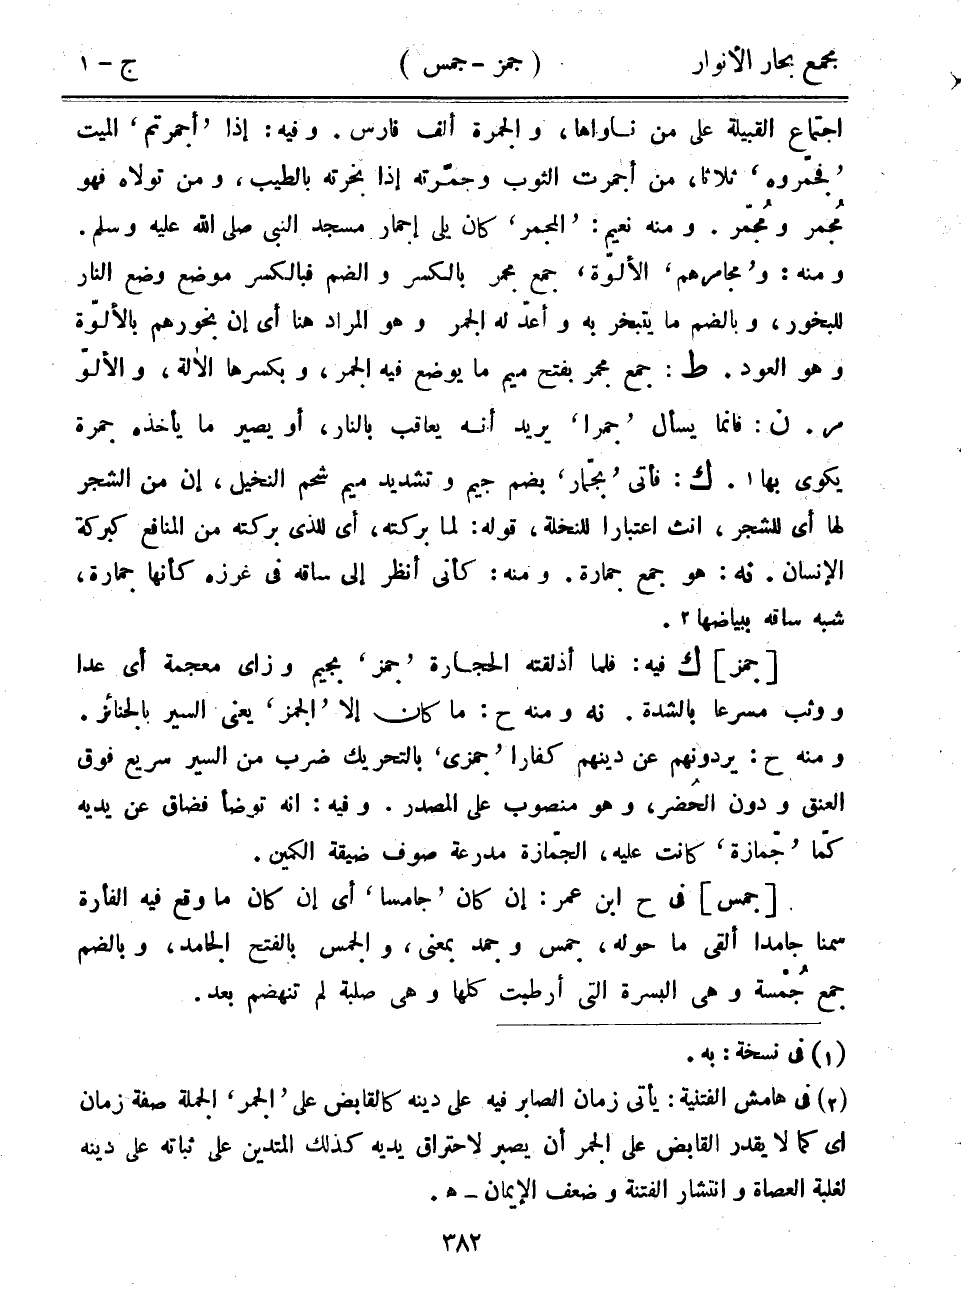 مجمع بحار الأنوار ( جمز - جمس ) ج - ١
اجتماع القبيلة على من ناواها، و الجمرة ألف فارس. و فيه: إذا ’أجمرتم‘ الميت
’فجمّروه‘ ثلاثا، من أجمرت الثوب وجمّرته إذا بخرته بالطيب، و من تولاه فهو
مُجمر و مُجمّر. و منه نعيم: ’المجمر‘ كان يلى إجمار مسجد النبى صلى الله عليه و سلم.
و منه: و’مجامرهم‘ الألوّة، جمع مجمر بالكسر و الضم فبالكسر موضع وضع النار
للبخور، و بالضم ما يتبخر به و أعدّ له الجمر و هو المراد هنا أى إن بخورهم بالألوّة
و هو العود. ط: جمع مجمر بفتح ميم ما يوضع فيه الجمر، و بكسرها الآلة، و الألوّ
مر. ن: فانما يسأل ’جمرا‘ يريد أنه يعاقب بالنار، أو يصير ما يأخذه جمرة
يكوى بها١. ك: فأتى ’بجُمّار‘ بضم جيم و تشديد ميم شحم النخيل، إن من الشجر
لها أى للشجر، انث اعتبارا للنخلة، قوله: لما بركته، أى للذى بركته من المنافع كبركة
الإنسان. نه: هو جمع جمارة. و منه: كأنى أنظر إلى ساقه فى غرزه كأنها جمارة،
شبه ساقه ببياضها٢.
[جمز] ك فيه: فلما أذلقته الحجارة ’جمز‘ بجيم و زاى معجمة أى عدا
و وثب مسرعا بالشدة. نه و منه ح: ما كان إلا ’الجمز‘ يعنى السير بالجنائز.
و منه ح: يردونهم عن دينهم كفارا ’جمزى‘ بالتحريك ضرب من السير سريع فوق
العنق و دون الحُضر، و هو منصوب على المصدر. و فيه: انه توضأ فضاق عن يديه
كمّا ’جمّازة‘ كانت عليه، الجمّازة مدرعة صوف ضيقة الكمين.
[جمس] فى ح ابن عمر: إن كان ’جامسا‘ أى إن كان ما وقع فيه الفأرة
سمنا جامدا ألقى ما حوله، جمس و جمد بمعنى، و الجمس بالفتح الجامد، و بالضم
جمع جُمْسة و هى البسرة التى أرطبت كلها و هى صلبة لم تنهضم بعد.
(١) فى نسخة: به.
(٢) فى هامش الفتنية: يأتى زمان الصابر فيه على دينه كالقابض على ’الجمر‘ الجملة صفة زمان
اى كما لا يقدر القابض على الجمر أن يصبر لاحتراق يديه كذلك المتدين على ثباته على دينه
لغلبة العصاة و انتشار الفتنة و ضعف الإيمان - ه.
٣٨٢